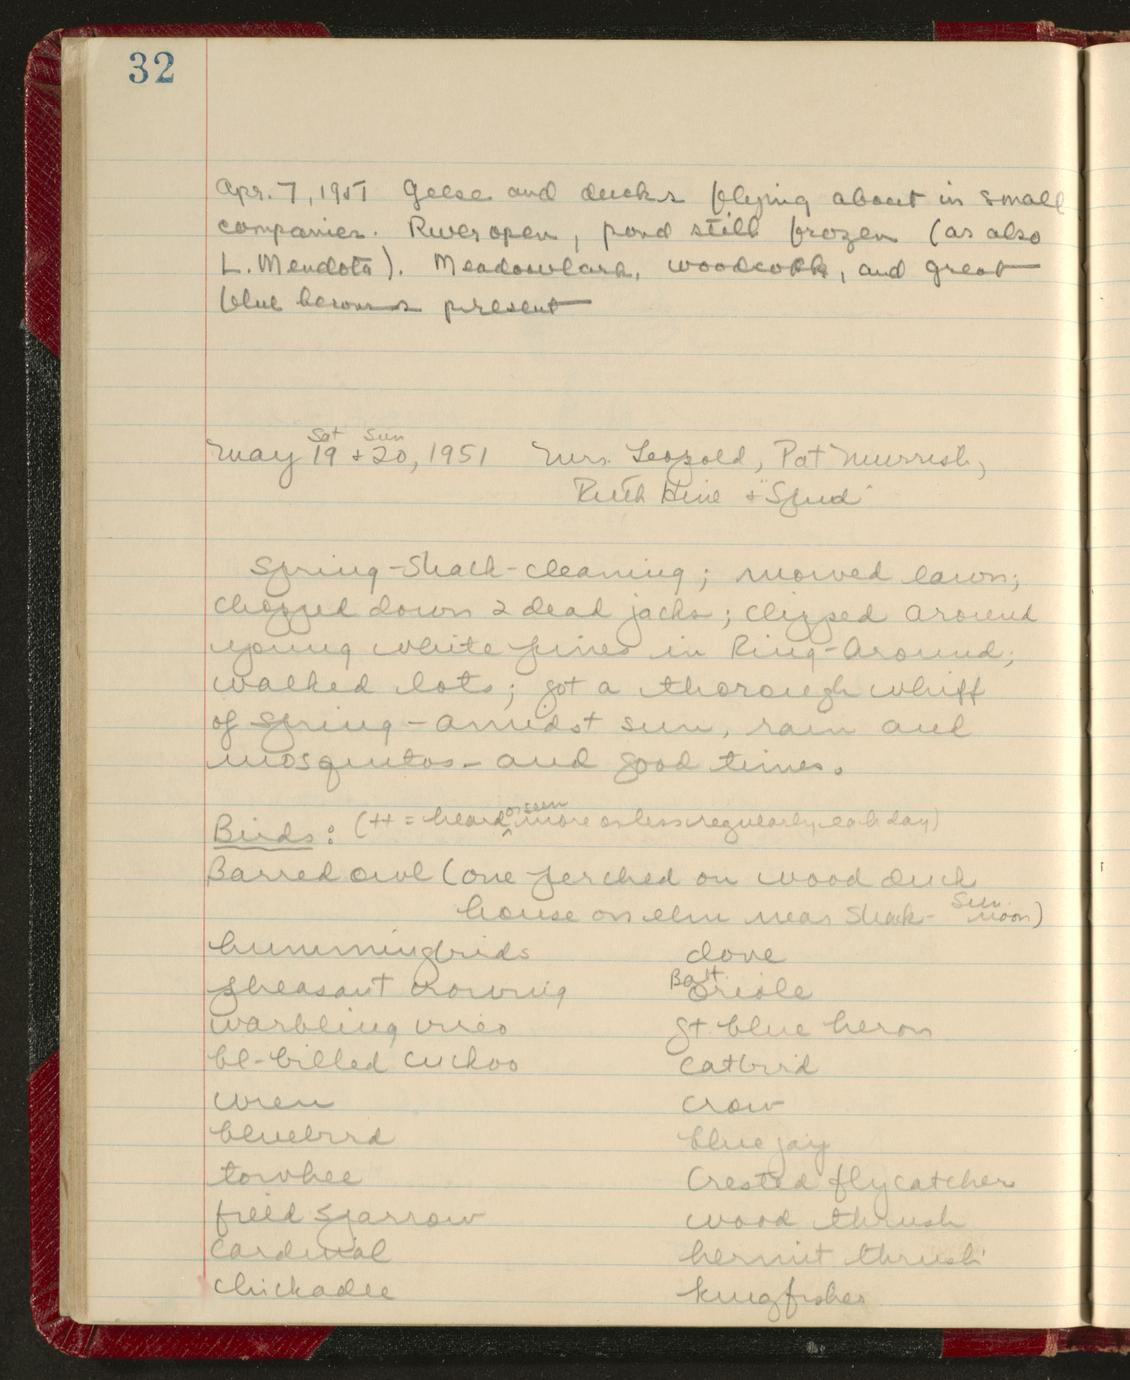 32
Apr. 7, 1951 Geese and ducks flying about in small
companies. River open, pond still frozen (as also
L. Mendota). Meadowlark, woodcock, and great
blue herons present
Sat Sun
May 19 + 20, 1951 Mrs. Leopold, Pat Murrish,
Ruth Hine + "Spud"
Spring-Shack-cleaning; mowed lawn;
chopped down 2 dead jacks; clipped around
young white pines in Ring-Around;
walked lots; got a thorough whiff
of spring - amidst sun, rain and
mosquitos - and good times.
Birds: (++ = heard ^or seen more or less regularly each day)
Barred owl (one perched on wood duck
house on elm near Shack - Sun. noon)
hummingbirds dove
pheasant crowing Balt. oriole
warbling vireo gt. blue heron
bl-billed cuckoo catbird
wren crow
bluebird blue jay
towhee Crested flycatcher
field sparrow wood thrush
cardinal hermit thrush
chickadee kingfisher